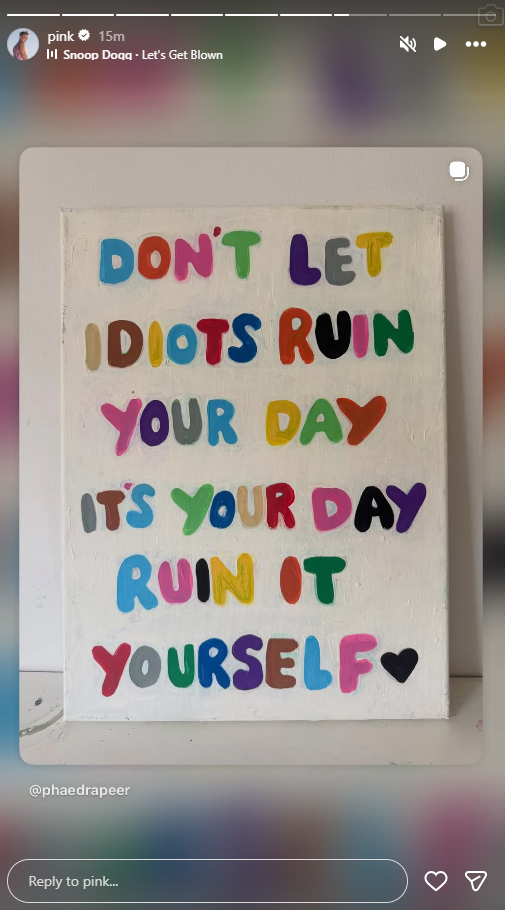 pink 15m
Snoop Dogg · Let's Get Blown
DON'T LET
IDIOTS RUIN
YOUR DAY
IT'S YOUR DAY
RUIN IT
YOURSELF
@phaedrapeer
Reply to pink...